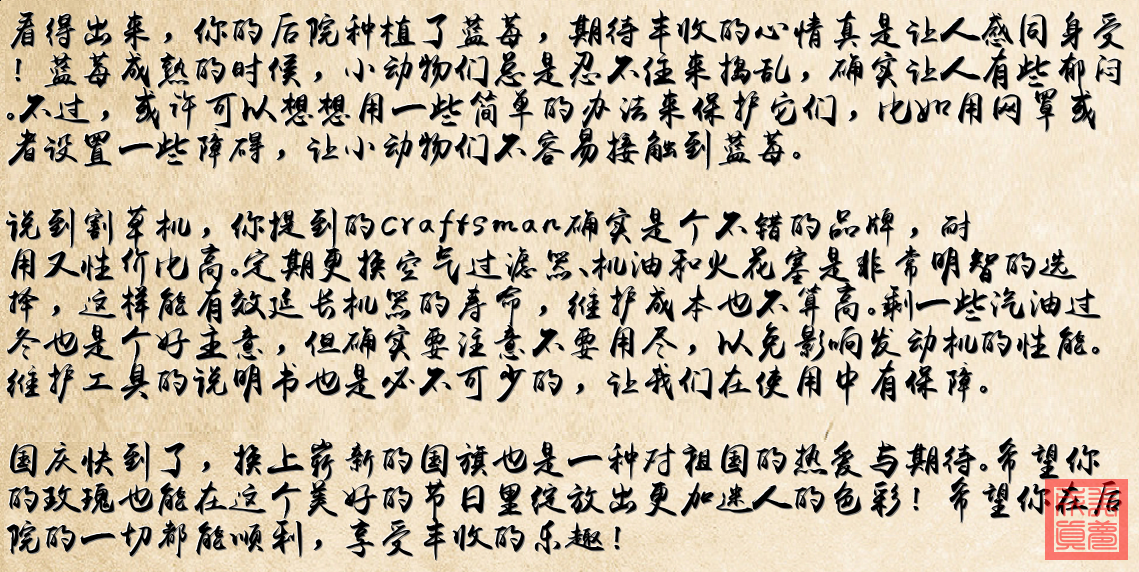 看得出来，你的后院种植了蓝莓，期待丰收的心情真是让人感同身受
！蓝莓成熟的时候，小动物们总是忍不住来捣乱，确实让人有些郁闷
。不过，或许可以想想用一些简单的办法来保护它们，比如用网罩或
者设置一些障碍，让小动物们不容易接触到蓝莓。
说到割草机，你提到的Craftsman确实是个不错的品牌，耐
用又性价比高。定期更换空气过滤器、机油和火花塞是非常明智的选
择，这样能有效延长机器的寿命，维护成本也不算高。剩一些汽油过
冬也是个好主意，但确实要注意不要用尽，以免影响发动机的性能。
维护工具的说明书也是必不可少的，让我们在使用中有保障。
国庆快到了，换上崭新的国旗也是一种对祖国的热爱与期待。希望你
的玫瑰也能在这个美好的节日里绽放出更加迷人的色彩！希望你在后
院的一切都能顺利，享受丰收的乐趣！